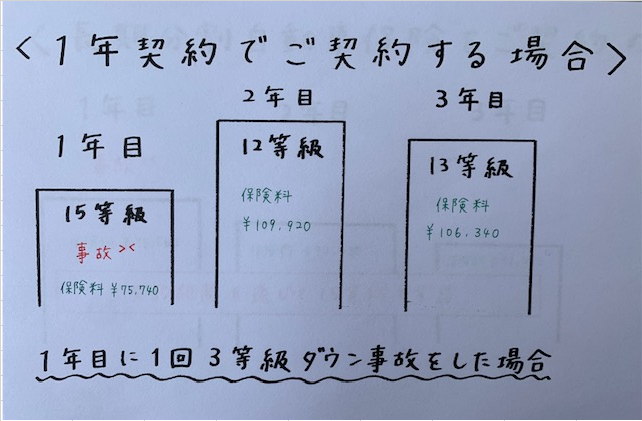 <1年契約でご契約する場合>
1年目
15等級
事故><
保険料 ¥75,740
2年目
12等級
保険料
¥109,920
3年目
13等級
保険料
¥106,340
1年目に1回3等級ダウン事故をした場合